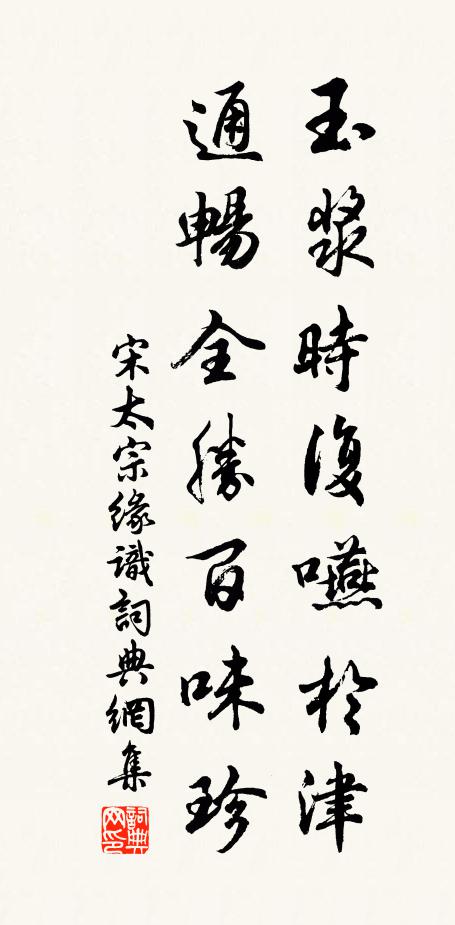 玉漿時復嚥於津
通暢全勝百味珍
宋太宗緣識詞典網集
詞典网印